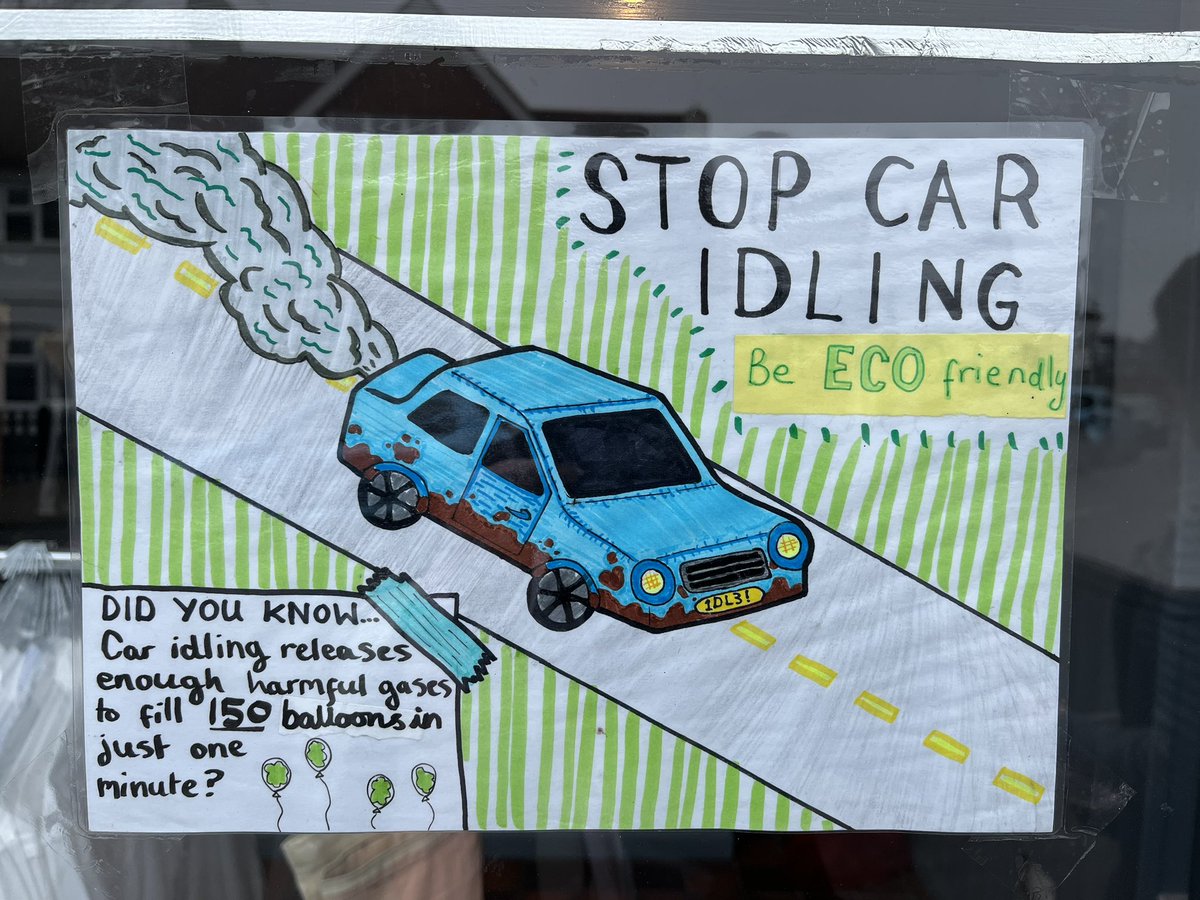 STOP CAR
IDLING
Be ECO friendly
1DL3!
DID YOU KNOW...
Car idling releases
enough harmful gases
to fill 150 balloons in
just one
minute?